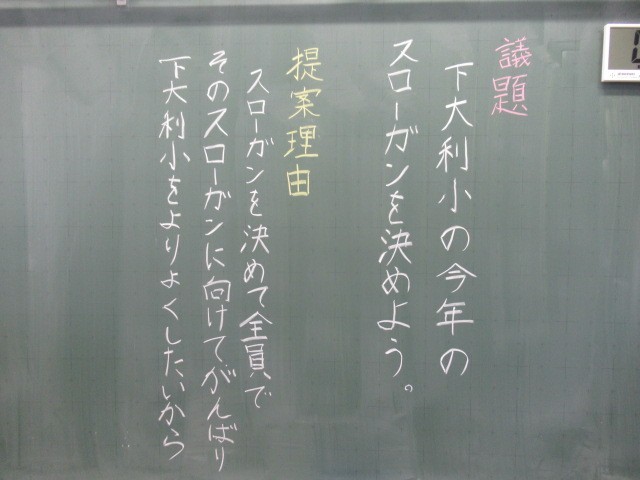 議題
下大利小の今年の
スローガンを決めよう。
提案理由
スローガンを決めて全員で
そのスローガンに向けてがんばり
下大利小をよりよくしたいから